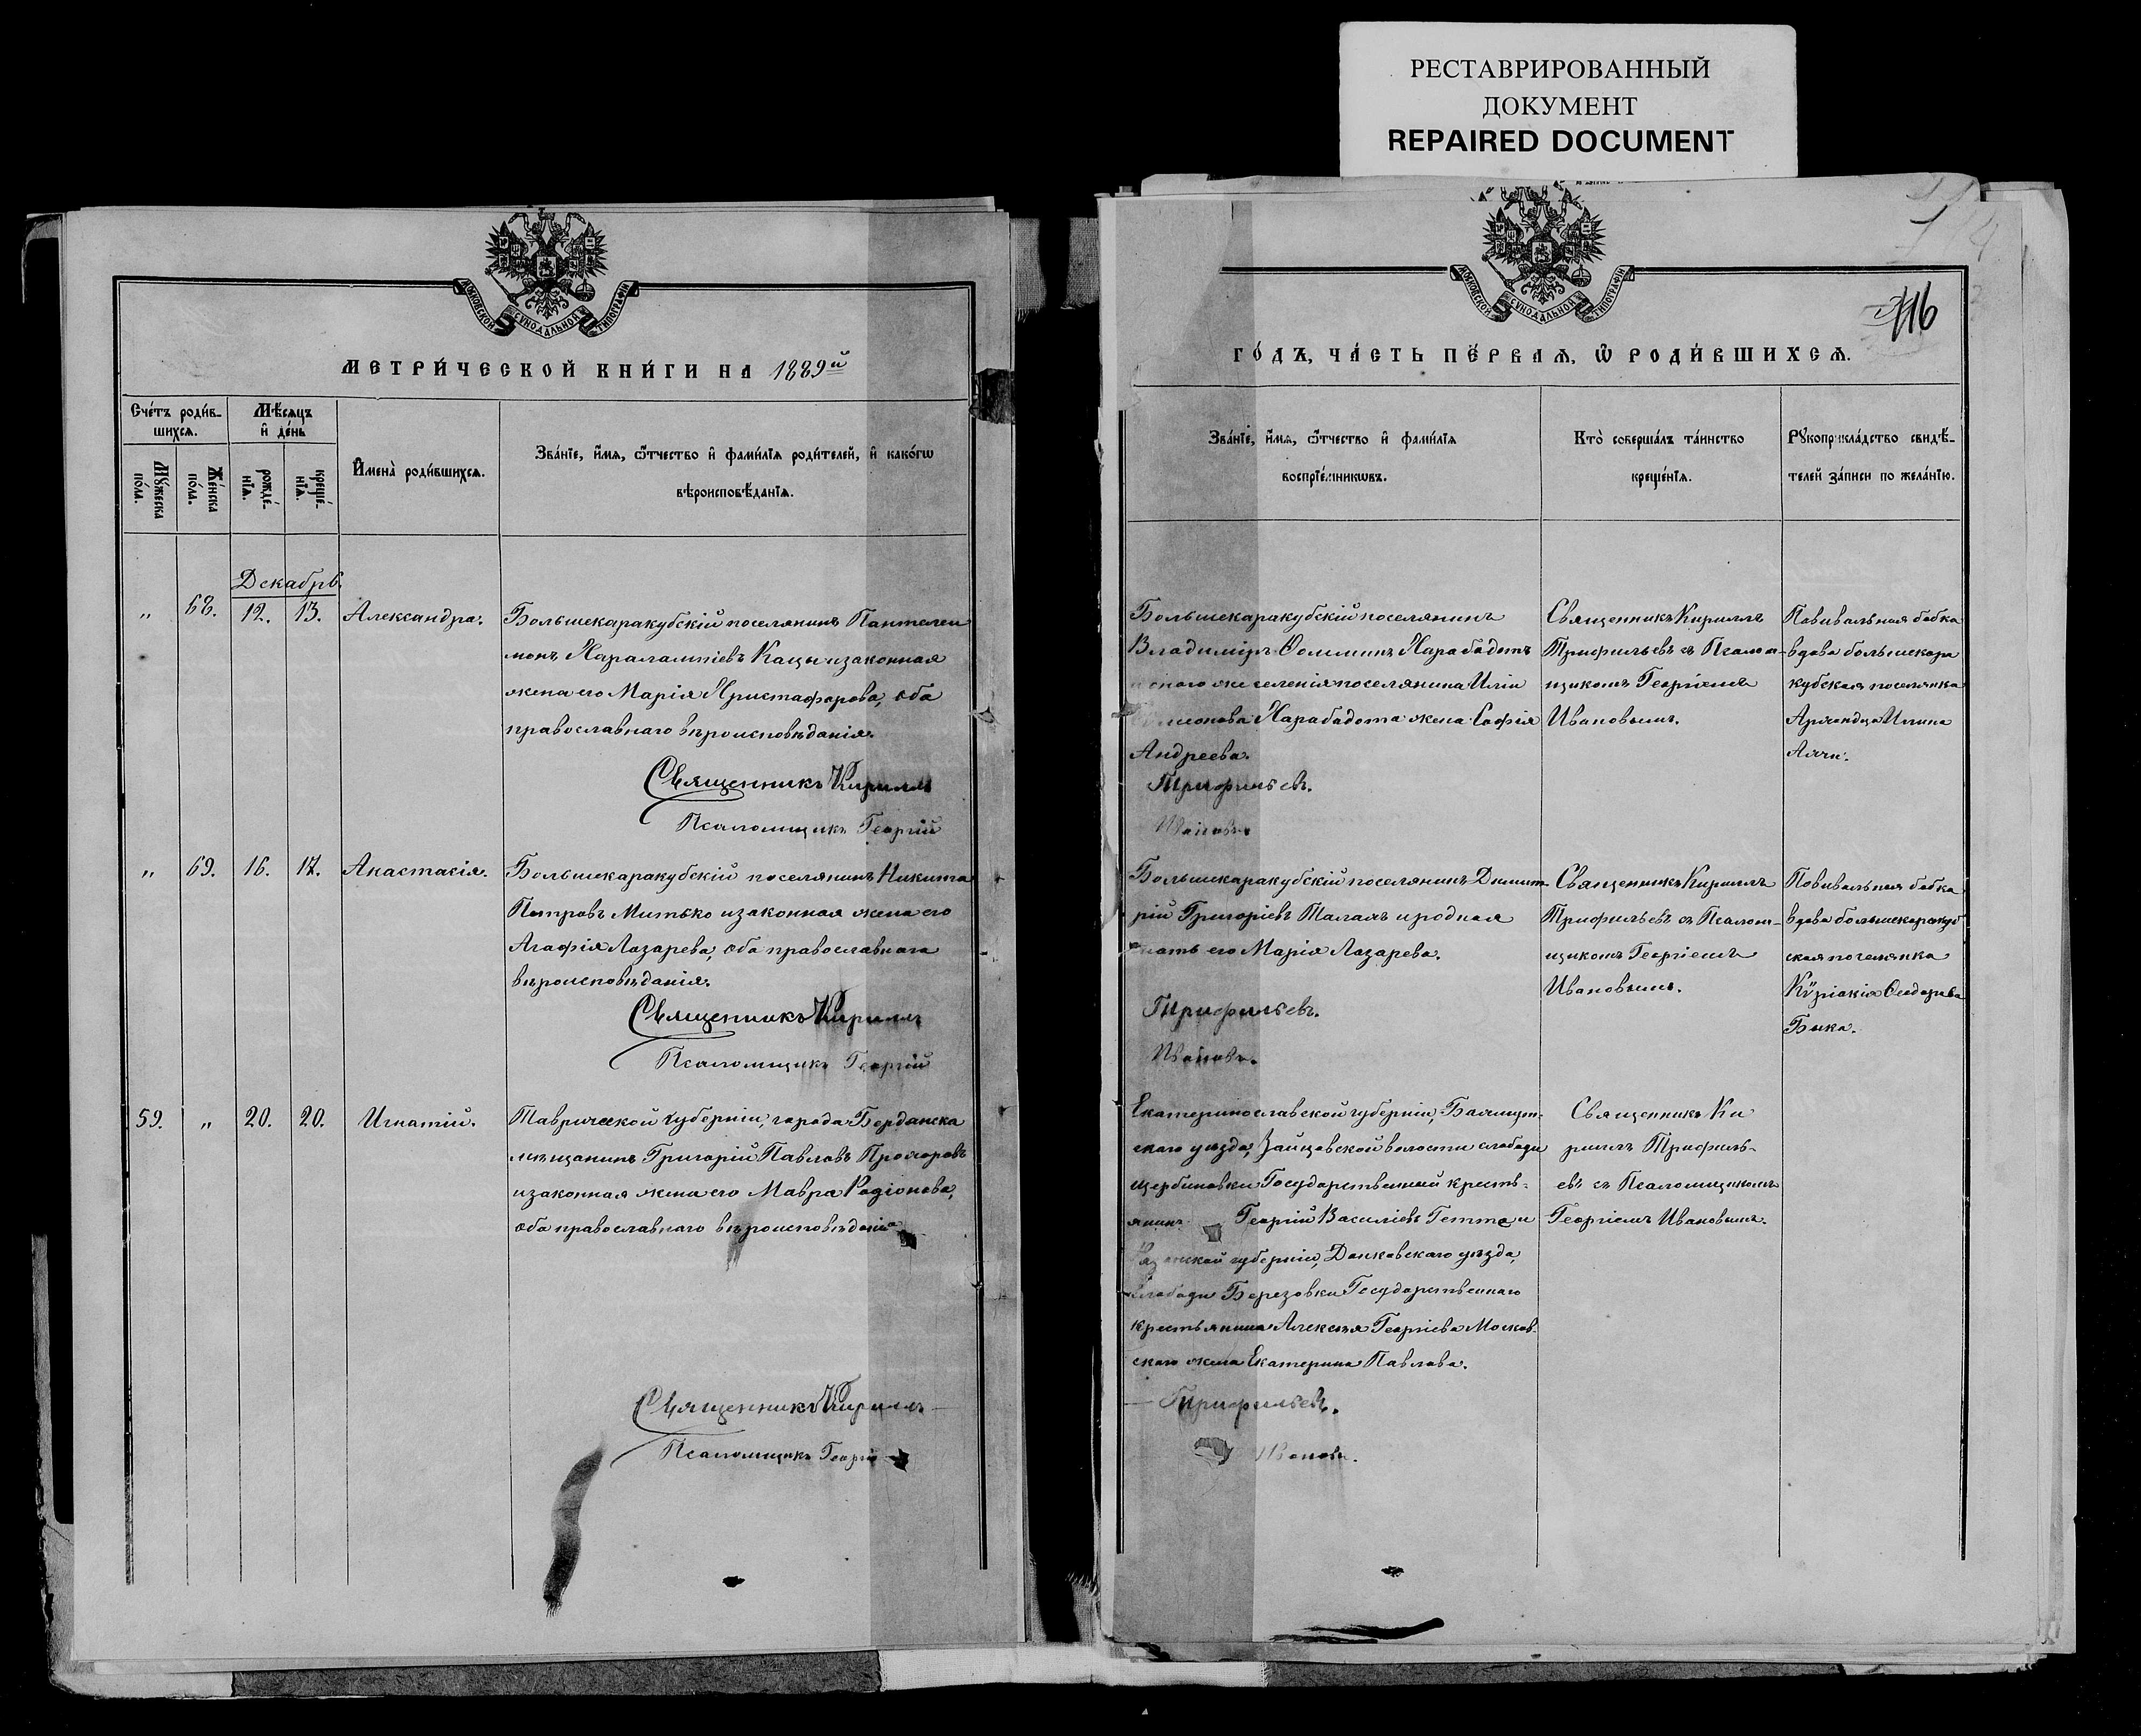 РЕСТАВРИРОВАННЫЙ
ДОКУМЕНТ
REPAIRED DOCUMENT
МОСКОВСКОЙ СѴНОДАЛЬНОЙ ТИПОГРАФІИ
МЕТРИ́ЧЕСКОЙ КНИ́ГИ НА 1889й
Сче́тъ роди́в-
шихсѧ.
Мѣ́сѧцъ
и҆ де́нь
Мꙋ́жеска
по́ла.
Же́нска
по́ла.
рожде́-
нїѧ.
креще́-
нїѧ.
И҆мена̀ роди́вшихсѧ.
Зва́нїе, и҆́мѧ, ѻ҆́тчество и҆ фами́лїѧ роди́телей, и҆ како́гѡ
вѣроисповѣ́данїѧ.
Декабрь.
" 68. 12. 13. Александра.
Большекаракубскій поселянинъ Пантелеи
монъ Харалампіевъ Кацы и законная
жена его Марія Христафорова, оба
православнаго вѣроисповѣданія.
Священникъ Кириллъ
Псаломщикъ Георгій
" 69. 16. 17. Анастасія.
Большекаракубскій поселянинъ Никита
Петровъ Митько и законная жена его
Агафія Лазарева, оба православнаго
вѣроисповѣданія.
Священникъ Кириллъ
Псаломщикъ Георгій
59. " 20. 20. Игнатій.
Таврической губерніи, города Бердянска
мѣщанинъ Григорій Павловъ Прохоровъ
и законная жена его Мавра Родіонова,
оба православнаго вѣроисповѣданія
Священникъ Кириллъ
Псаломщикъ Георгій
МОСКОВСКОЙ СѴНОДАЛЬНОЙ ТИПОГРАФІИ
116
ГО́ДЪ, ЧА́СТЬ ПЕ́РВАѦ, Ѡ҆ РОДИ́ВШИХСѦ.
Зва́нїе, и҆́мѧ, ѻ҆́тчество и҆ фами́лїѧ
воспрїе́мникѡвъ.
Кто̀ соверша́лъ та́инство
креще́нїѧ.
Рꙋкоприкла́дство свидѣ́-
телей за́писи по жела́нїю.
Большекаракубскій поселянинъ
Владиміръ Ѳоминъ Харабадотъ
жеселенія поселянина Иліи
Харабадота жена Софія
Андреева.
Трифильевъ.
Ивановъ
Священникъ Кириллъ
Трифильевъ съ Псалом-
щикомъ Георгіемъ
Ивановымъ.
Повивальная бабка
вдова большекара
кубская поселянка
Ильина
Большекаракубскій поселянинъ Димит-
рій Григоріевъ Талахъ и родная
мать его Марія Лазарева.
Трифильевъ.
Ивановъ.
Священникъ Кириллъ
Трифильевъ съ Псалом-
щикомъ Георгіемъ
Ивановымъ.
Повивальная бабка
вдова большекаракуб
ская поселянка
Кѵріакія Ѳеодорова
Быка.
Екатеринославской губерніи, Бахмут-
скаго уѣзда, Зайцовской волости слободы
щербиновки Государственный кресть-
янинъ Георгій Василіевъ и
Рязанской губерніи, Данковскаго уѣзда,
слободы Березовки Государственнаго
крестьянина Алексѣя Георгіева Москов-
скаго жена Екатерина Павлова.
Трифильевъ.
Ивановъ.
Священникъ Ки
риллъ Трифиль-
евъ съ Псаломщикомъ
Георгіемъ Ивановымъ.